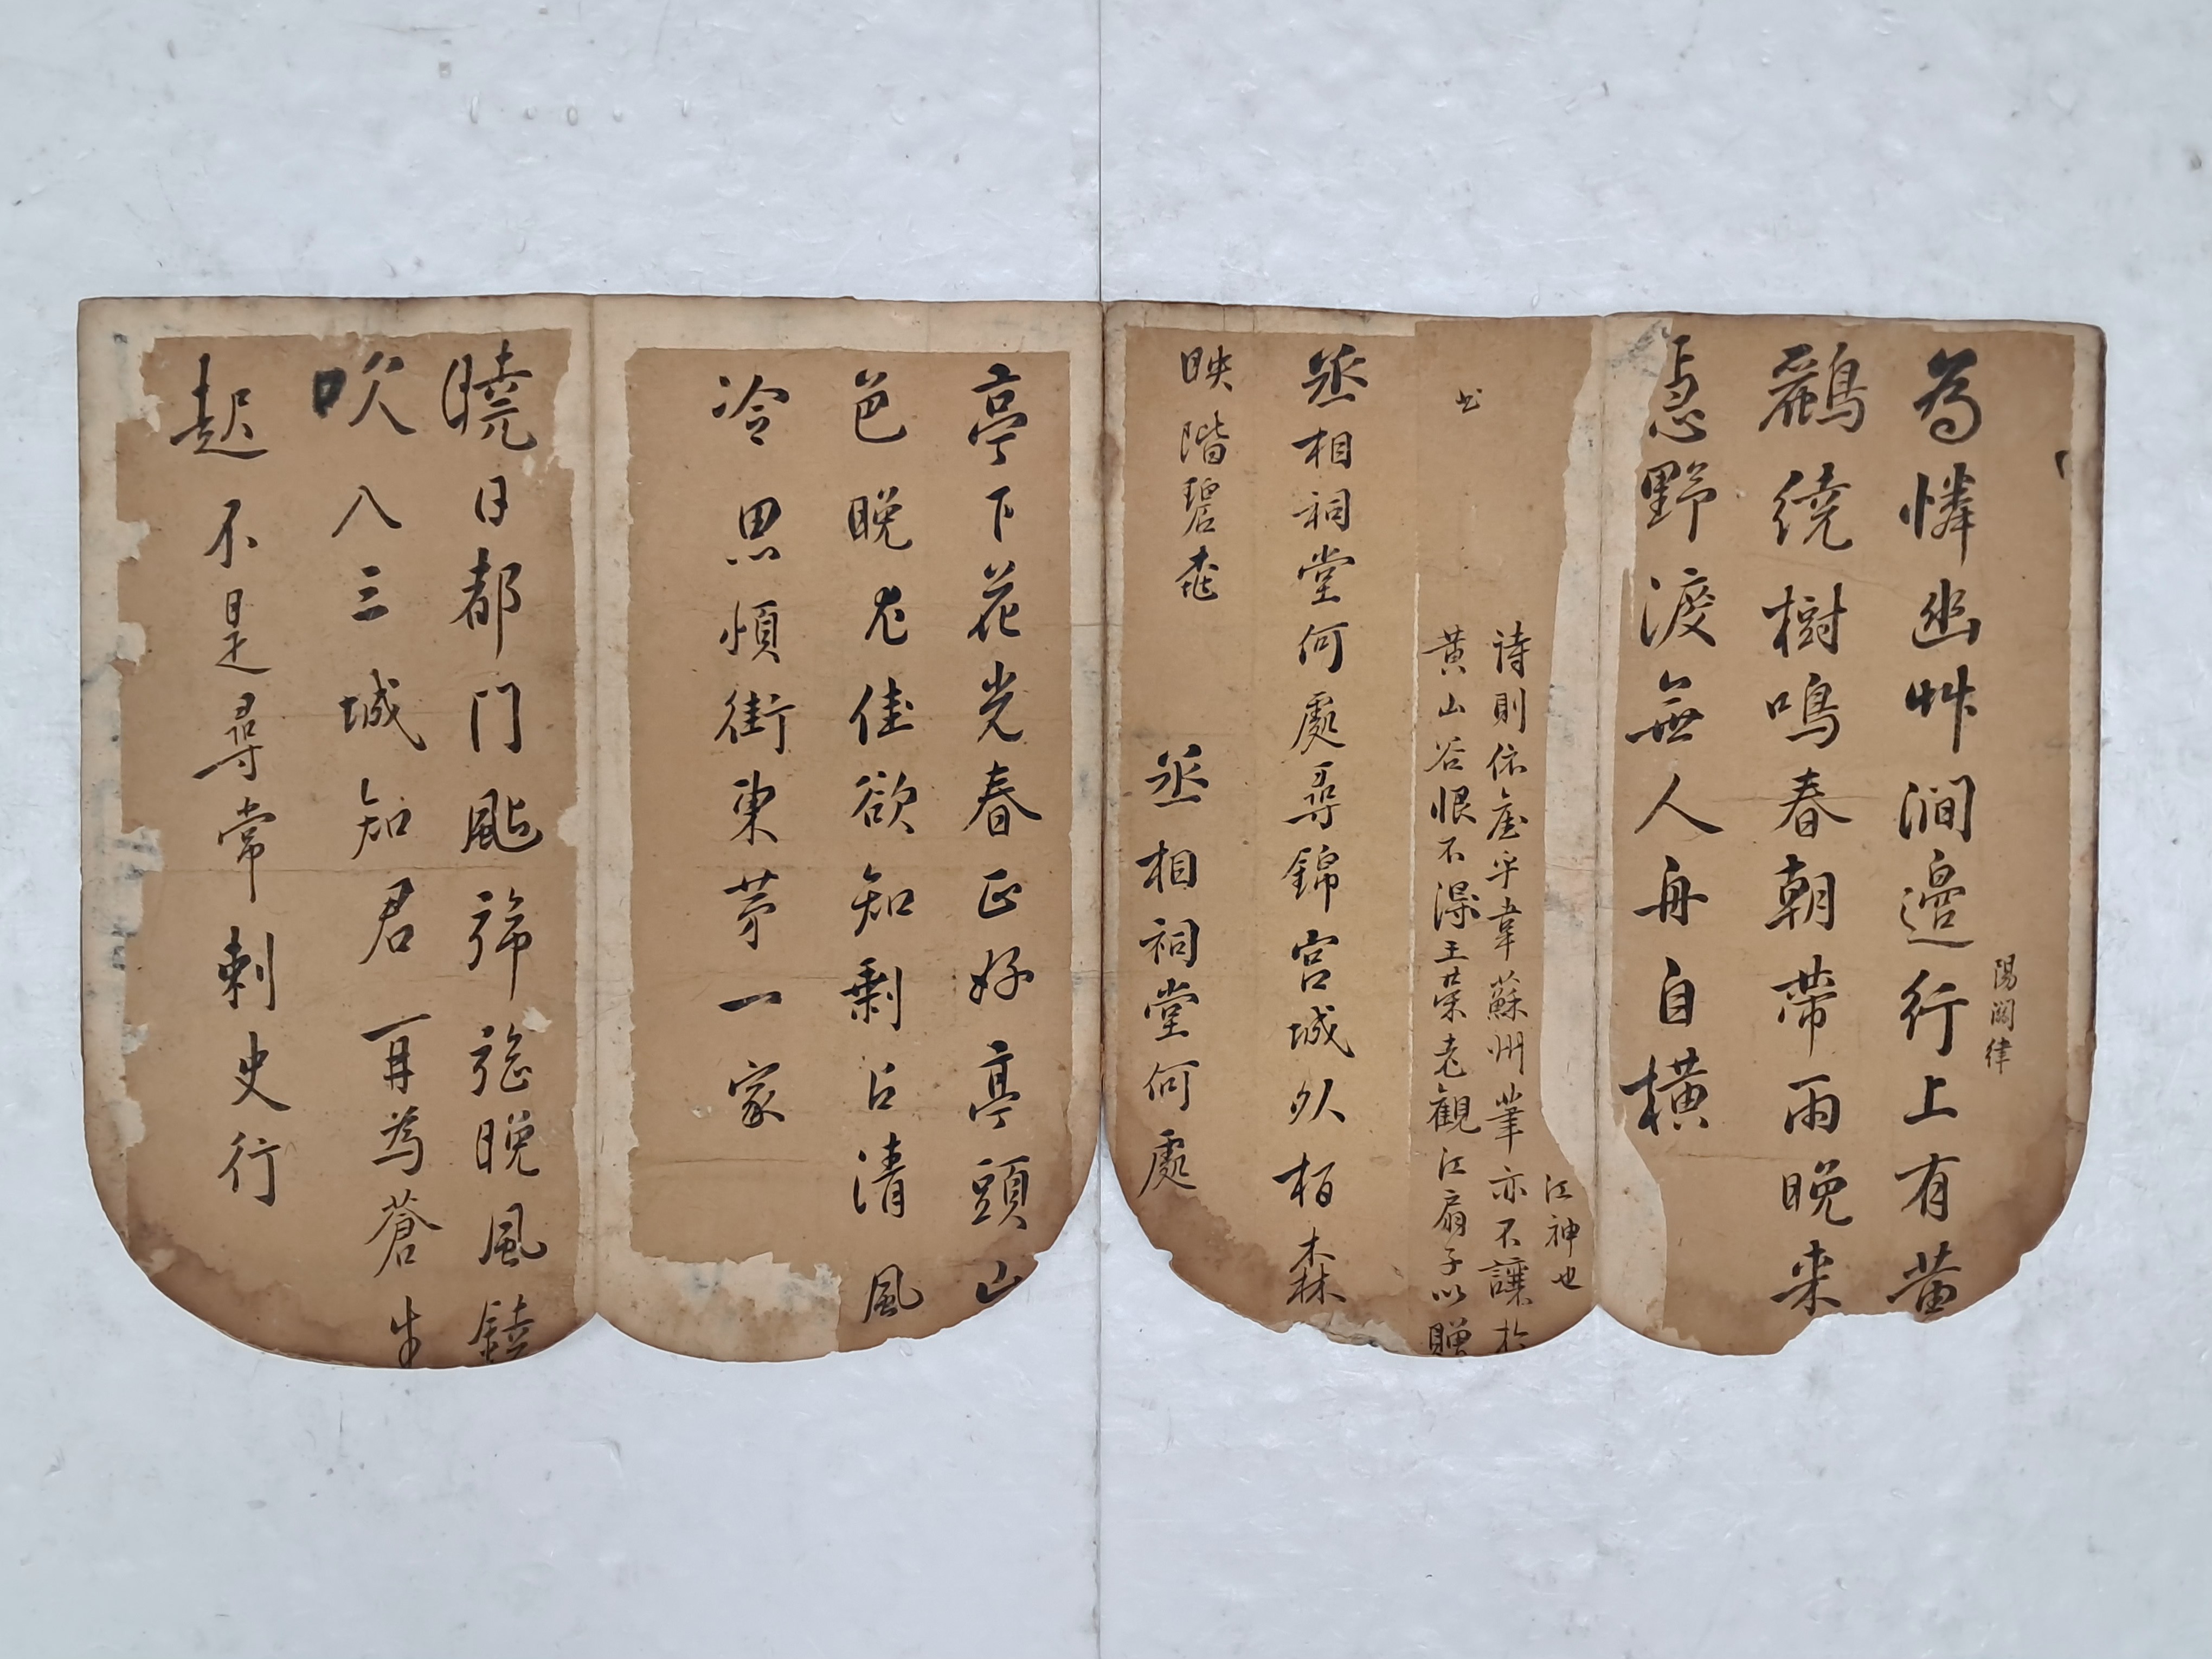 陽関律
為憐幽艸澗邉行上有黄
鸝繞樹鳴春朝帶雨晚来
急野渡無人舟自横
江神也
诗則依 平韋蘇州 亦不讓於
黄山谷恨不得王荣老觀江扇子以贈
丞相祠堂何處尋錦官城外栢森
映階碧
丞相祠堂何處
亭下花光春正好亭頭山
色晚尤佳欲知剩占清風
冷思順街東苐一家
曉日都門颭旆旌晚風鐃
吹入三城知君再為蒼生
起不是尋常刺史行